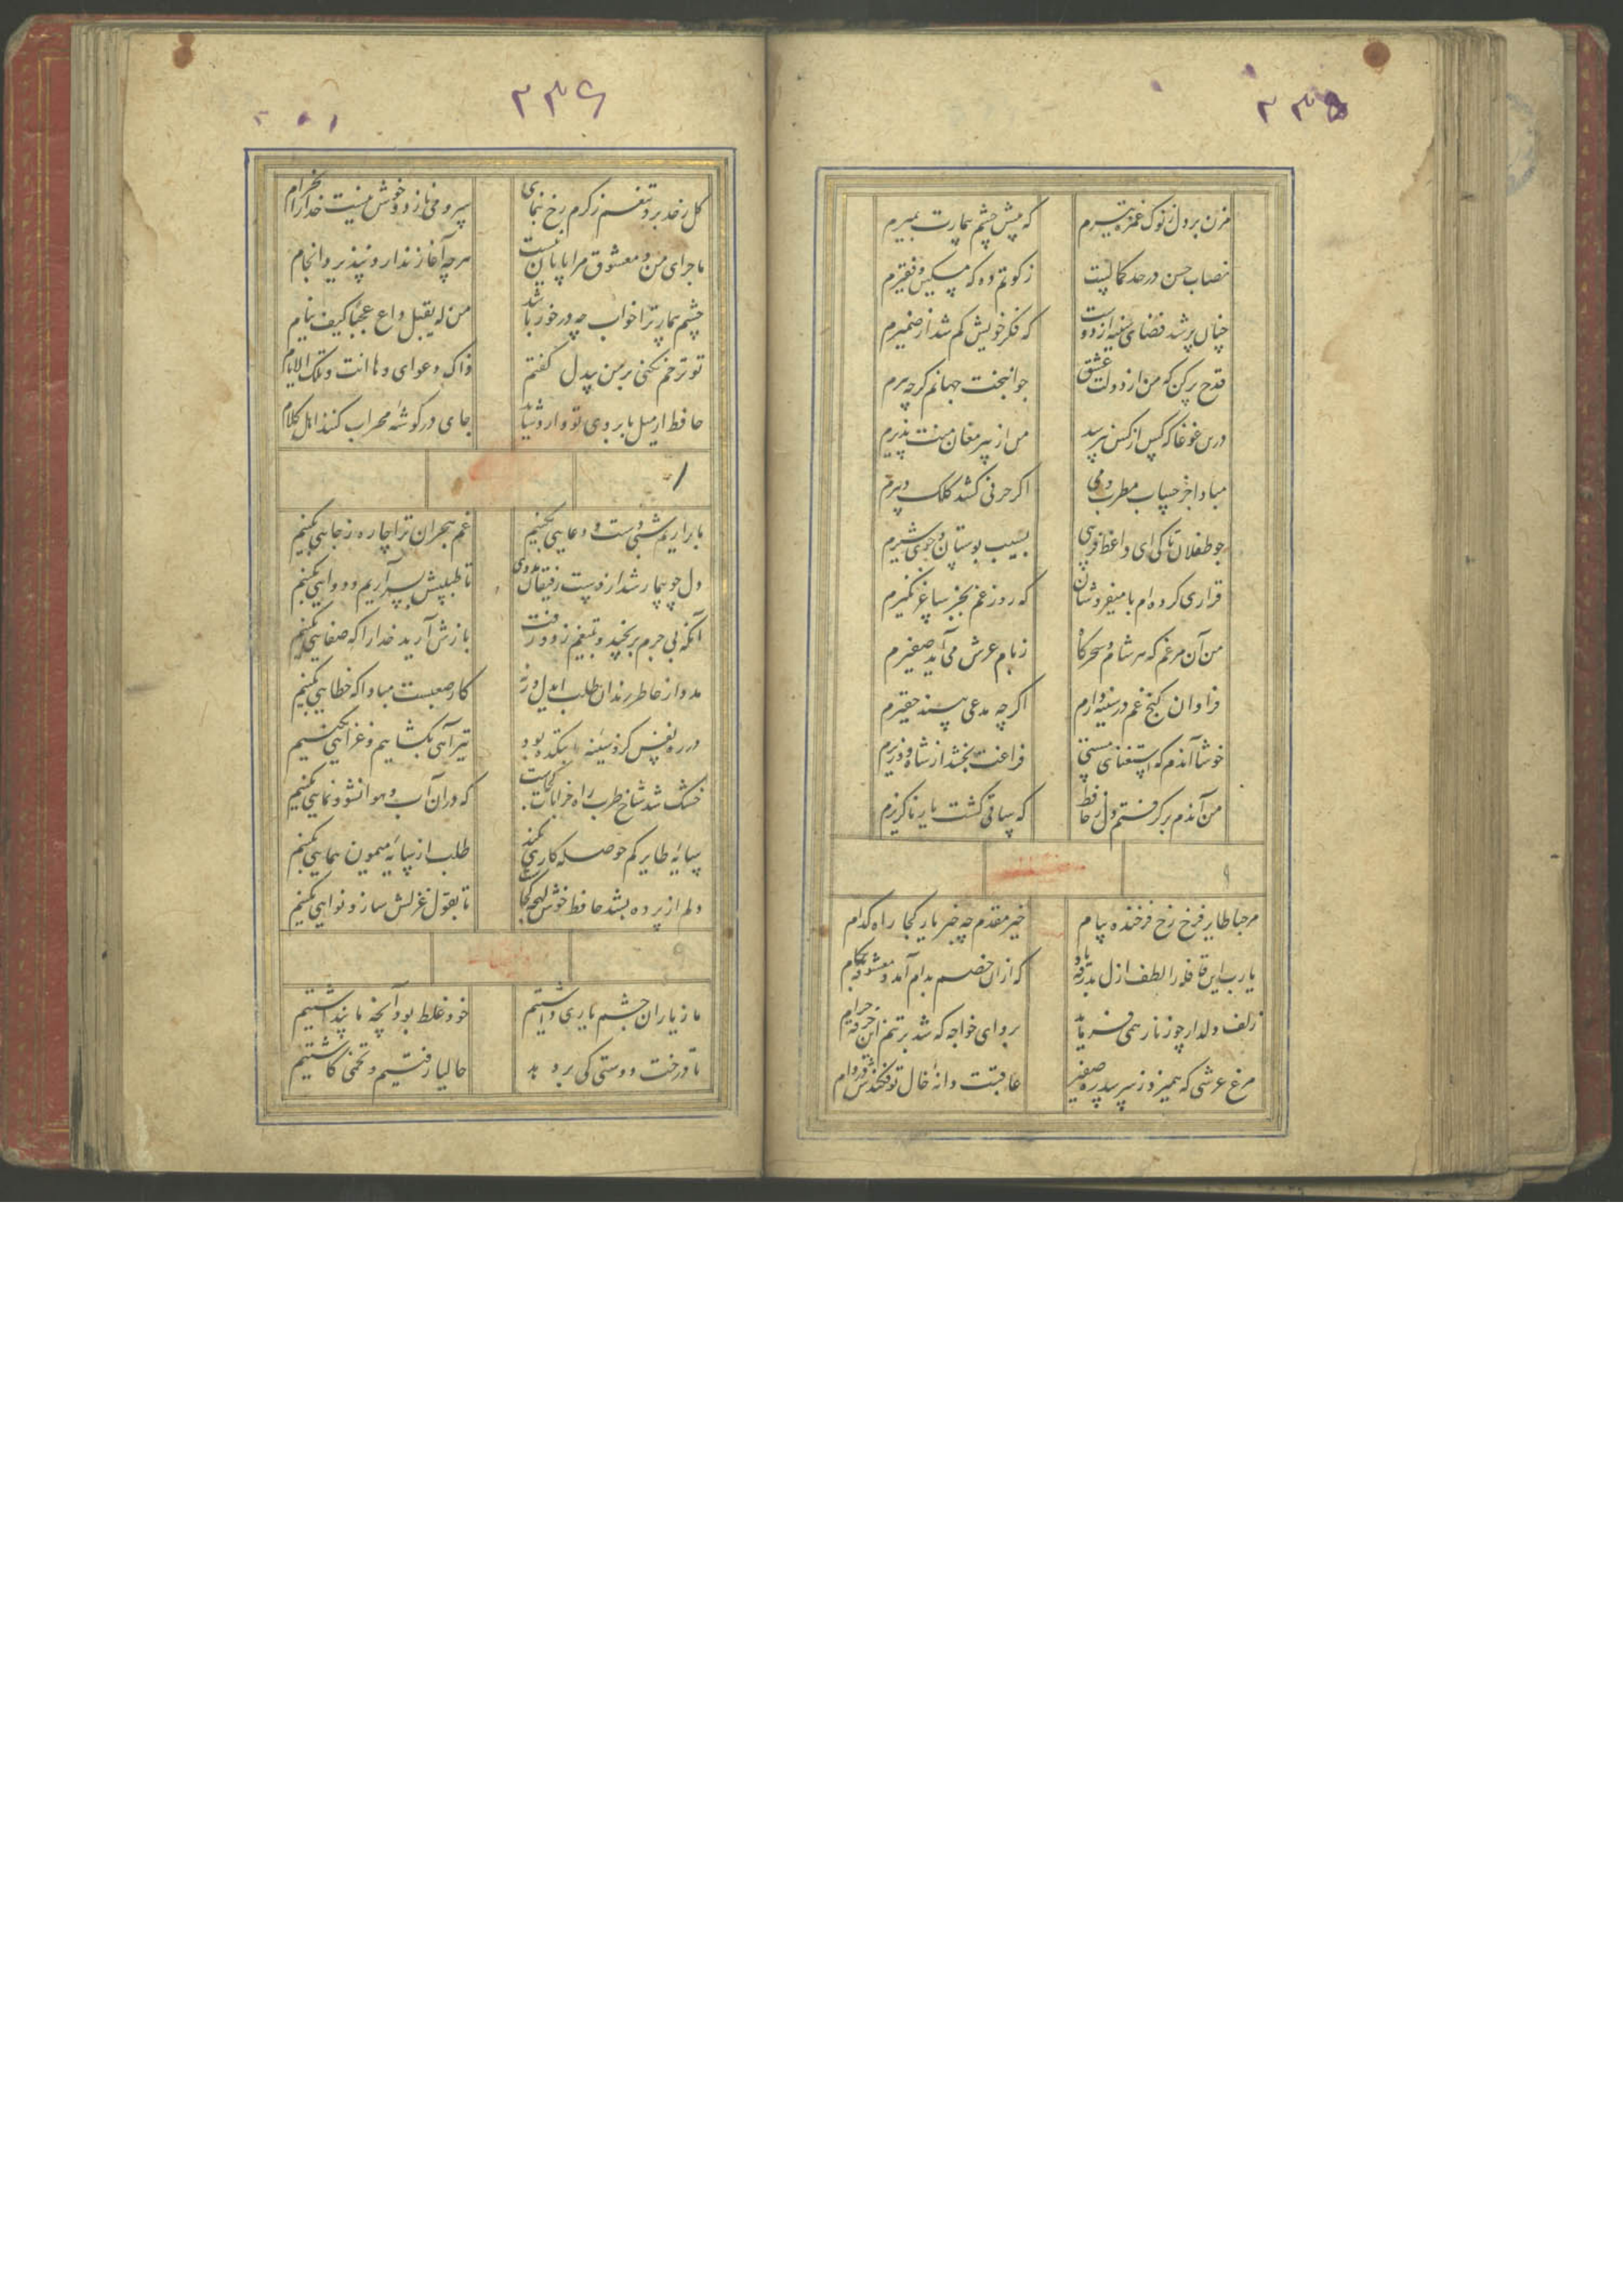 ۲۳۵
مزن بر دل ز نوک غمزه تیرم
که پیش چشم بیمارت بمیرم
نصاب حسن در حد کمالست
زکوتم ده که مسکین و فقیرم
چنان پر شد فضای سینه از دوست
که فکر خویش گم شد از ضمیرم
قدح پر کن که من از دولت عشق
جوانبخت جهانم گرچه پیرم
درین غوغا که کس از کس نپرسد
من از پیر مغان منت پذیرم
مبادا جز حساب مطرب و می
اگر حرفی کشد کلک دبیرم
چو طفلان تا کی ای واعظ فریبی
بسیب بوستان و جوی شیرم
قراری کرده ام با میفروشان
که روز غم بجز ساغر نگیرم
من آن مرغم که هر شام و سحرگاه
ز بام عرش می آید صفیرم
فراوان گنج غم در سینه دارم
اگرچه مدعی بیند حقیرم
خوشا آندم که استغنای مستی
فراغت بخشد از شاه و وزیرم
من آندم برگرفتم دل ز حافظ
که ساقی گشت یار ناگزیرم
۹
مرحبا طایر فرخ رخ فرخنده پیام
خیر مقدم چه خبر یار کجا راه کدام
یارب این قافله را لطف ازل بدرقه باد
که ازان خصم بدام آمد و معشوقه بکام
زلف دلدار چو زنار همی فرماید
برو ای خواجه که شد بر تنم این خرقه حرام
مرغ عرشی که همیزد ز سر سدره صفیر
عاقبت دانهٔ خال تو فکندش در دام
۲۳۶
گل ز حد برد تنعم ز کرم رخ بنمای
سرو می نازد و خوش نیست خدا را بخرام
ماجرای من و معشوق مرا پایان نیست
هرچه آغاز ندارد نپذیرد انجام
چشم بیمار ترا خواب چه در خور باشد
من له یقبل داع عجبا کیف ینام
تو ترحم نکنی بر من بیدل گفتم
ذاک دعوای و ها انت و تلک الایام
حافظ ار میل بابروی تو دارد شاید
جای در گوشهٔ محراب کنند اهل کلام
ما بر آریم شبی دست و دعایی بکنیم
غم هجران ترا چاره ز جایی بکنیم
دل چو بیمار شد از دست رفیقان مددی
تا طبیبش بسر آریم و دوایی بکنیم
آنکه بی جرم برنجید و بتیغم زد و رفت
بازش آرید خدا را که صفایی بکنیم
مدد از خاطر رندان طلب ای دل ورنه
کار صعبست مبادا که خطایی بکنیم
در ره نفس کزو سینهٔ ما بتکده بود
تیر آهی بگشاییم و غزایی بکنیم
خشک شد شاخ طرب راه خرابات کجاست
که دران آب و هوا نشو و نمایی بکنیم
سایهٔ طایر کم حوصله کاری نکند
طلب از سایهٔ میمون همایی بکنیم
دلم از پرده بشد حافظ خوش لهجه کجاست
تا بقول غزلش ساز و نوایی بکنیم
ما ز یاران چشم یاری داشتیم
خود غلط بود آنچه ما پنداشتیم
تا درخت دوستی کی بر دهد
حالیا رفتیم و تخمی کاشتیم